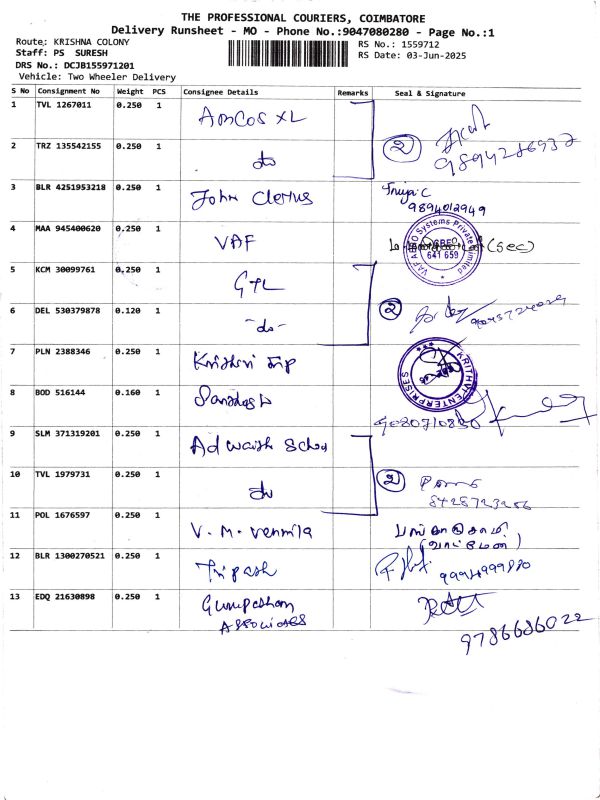 THE PROFESSIONAL COURIERS, COIMBATORE
Delivery Runsheet - MO - Phone No.:9047080280 - Page No.:1
Route: KRISHNA COLONY
Staff: PS SURESH
DRS No.: DCJB155971201
Vehicle: Two Wheeler Delivery
RS No.: 1559712
RS Date: 03-Jun-2025
S No Consignment No Weight PCS Consignee Details Remarks Seal & Signature
1 TVL 1267011 0.250 1 AmCos XL
2 TRZ 135542155 0.250 1 do 2
3 BLR 4251953218 0.250 1 John Clerius 9894012949
4 MAA 945400620 0.250 1 VAF (Sec)
641 659
5 KCM 30099761 0.250 1 GTL
6 DEL 530379878 0.120 1 -do- 2
7 PLN 2388346 0.250 1 Krithvi
KRITHVI ENTERPRISES
8 BOD 516144 0.160 1
9 SLM 371319201 0.250 1
10 TVL 1979731 0.250 1 do 2
8428723256
11 POL 1676597 0.250 1 V. M. Vennila
12 BLR 1300270521 0.250 1
13 EDQ 21630898 0.250 1
Associates
9786686022